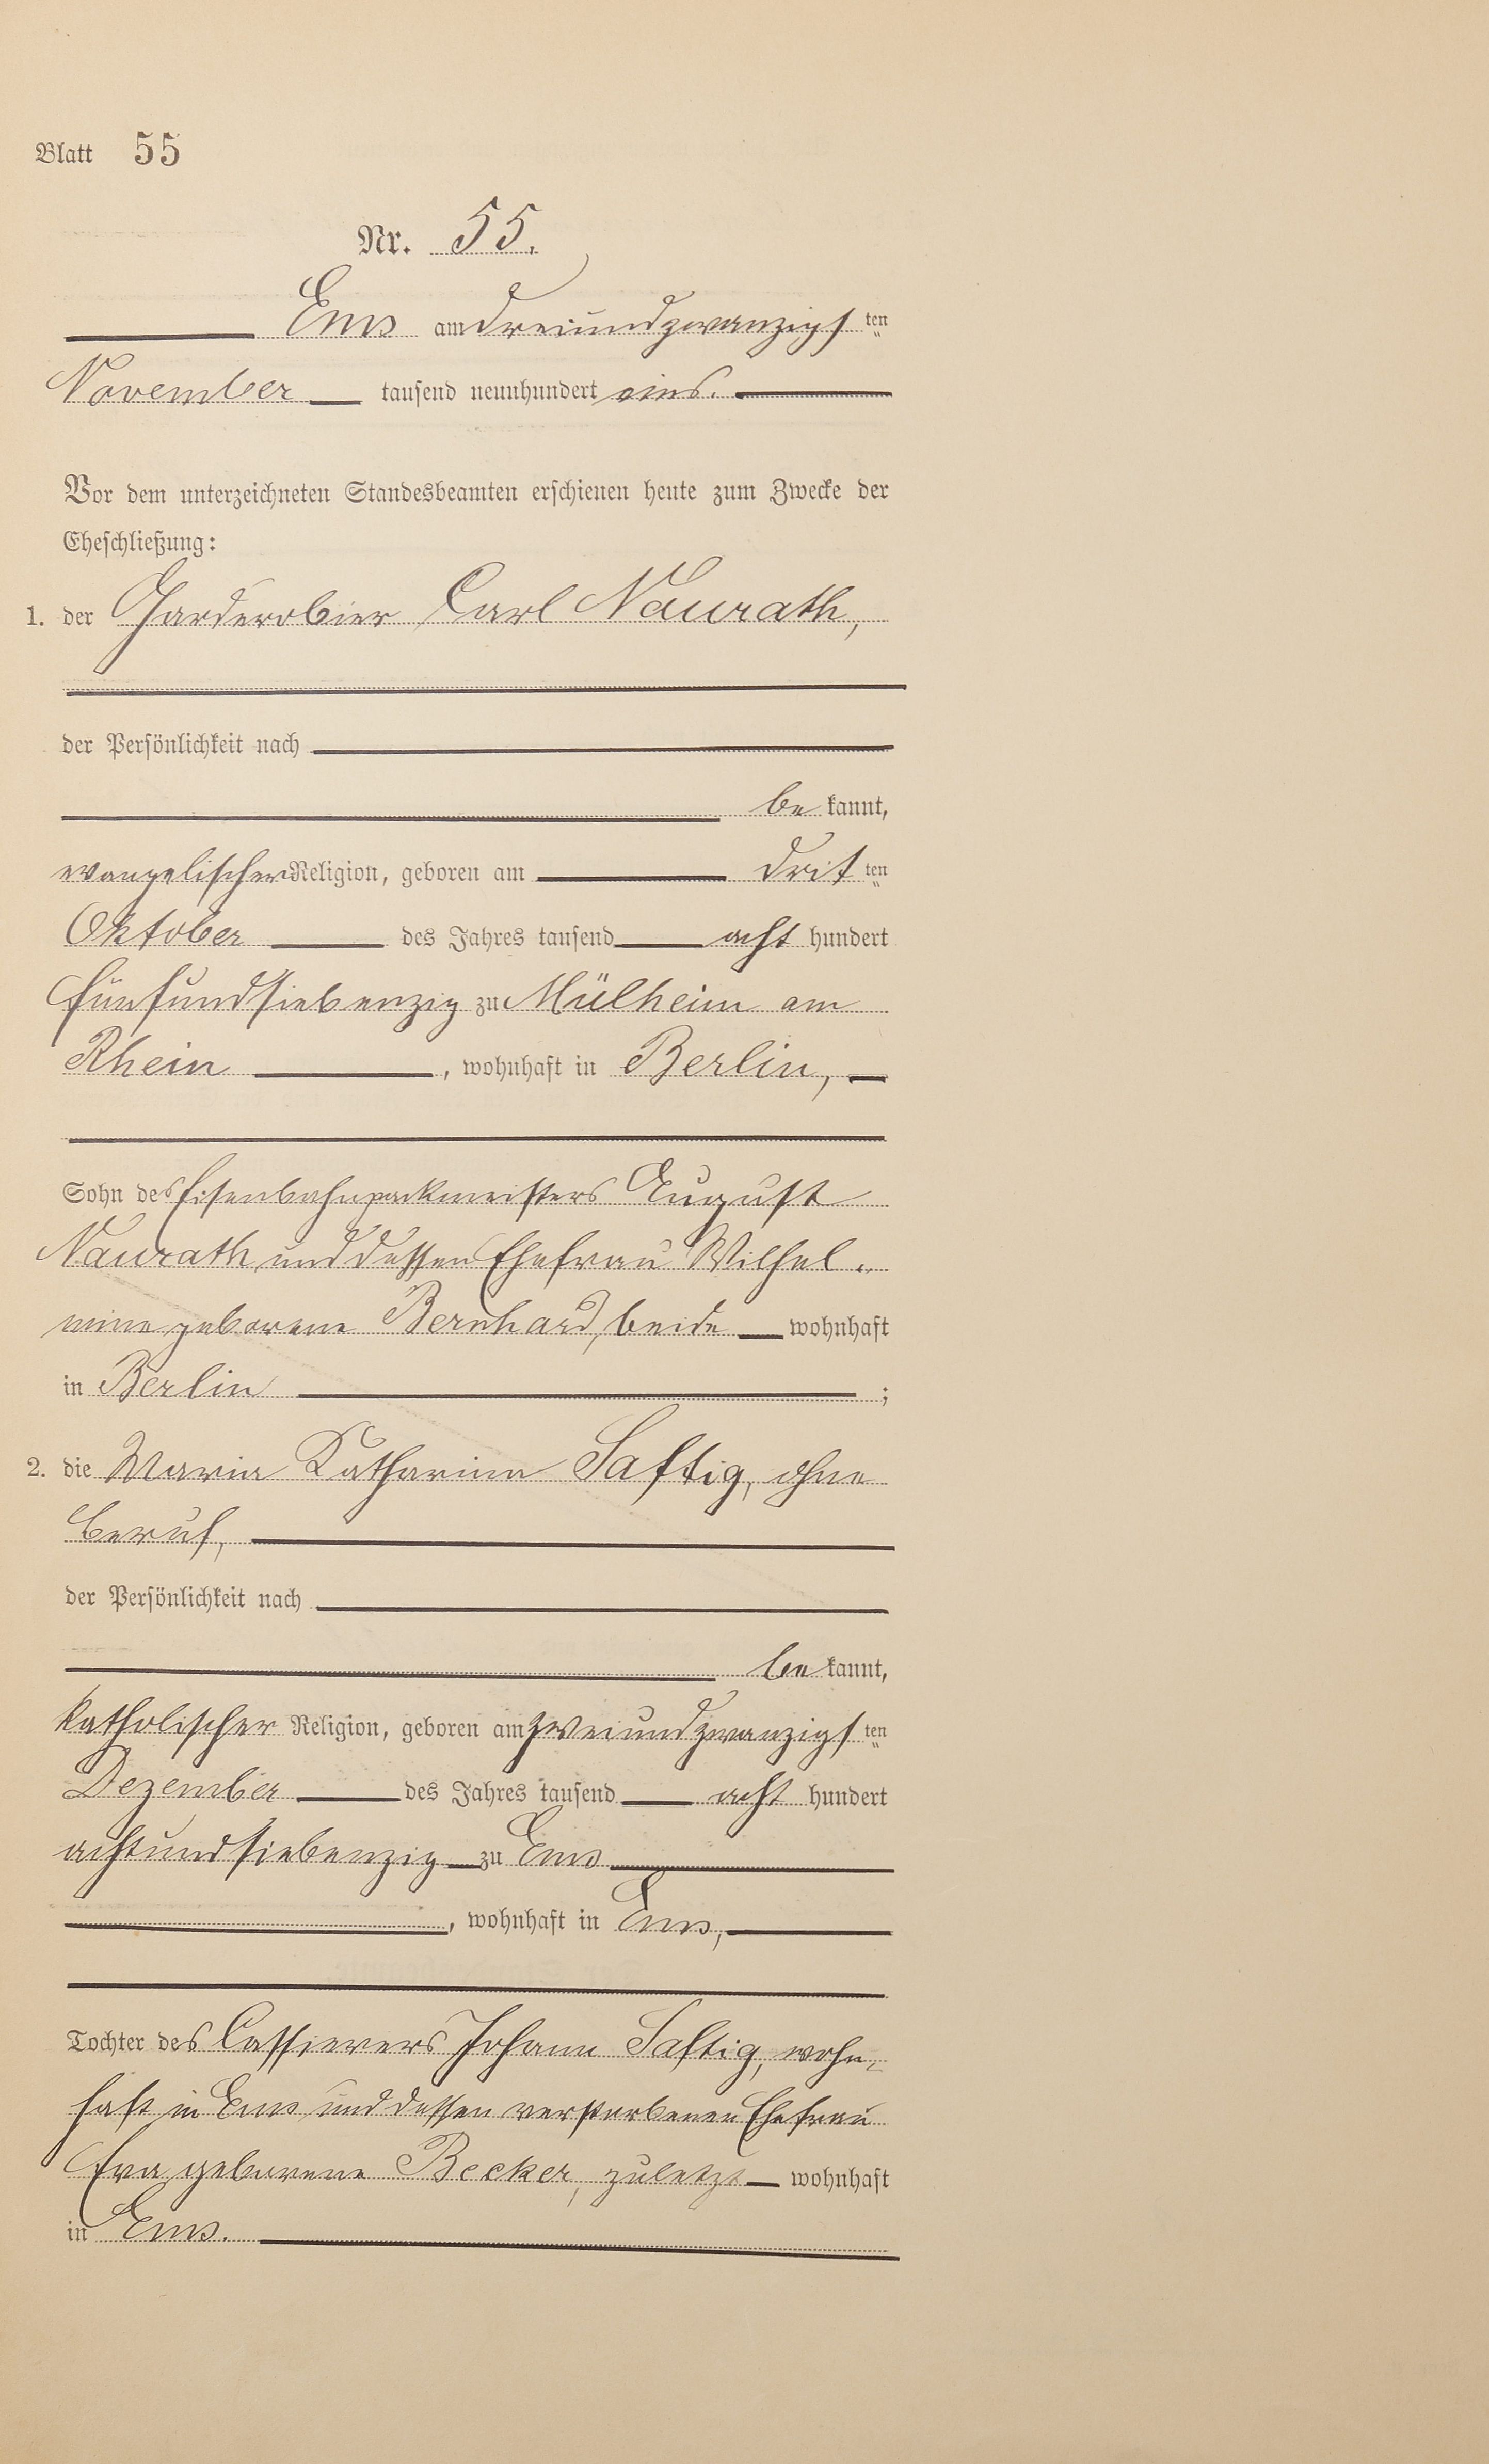 Blatt 55
Nr. 55.
Ems am dreiundzwanzigsten
November tausend neunhundert eins.
Vor dem unterzeichneten Standesbeamten erschienen heute zum Zwecke der
Eheschließung:
1. der Garderobier Carl Naurath,
der Persönlichkeit nach
be kannt,
evangelischer Religion, geboren am dritten
Oktober des Jahres tausend acht hundert
fünfundsiebenzig zu Mülheim am
Rhein, wohnhaft in Berlin,
Sohn des Eisenbahnpackmeisters August
Naurath und dessen Ehefrau Wilhel-
mine geborene Bernhard, beide wohnhaft
in Berlin ;
2. die Maria Katharina Saftig, ohne
Beruf,
der Persönlichkeit nach
be kannt,
katholischer Religion, geboren am zweiundzwanzigsten
Dezember des Jahres tausend acht hundert
achtundsiebenzig zu Ems
, wohnhaft in Ems,
Tochter des Cassierers Johann Saftig, wohn-
haft in Ems und dessen verstorbenen Ehefrau
Eva geborene Becker, zuletzt wohnhaft
in Ems.